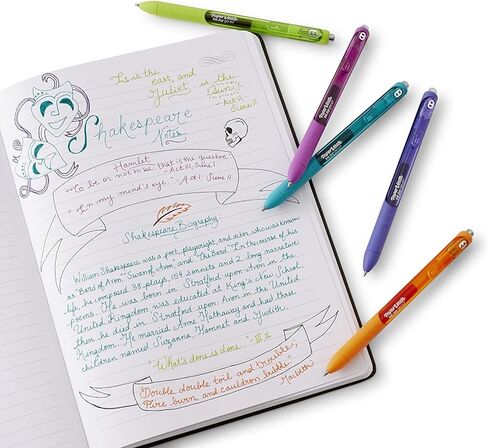 It is the
east, and
Juliet is the
sun.
- Act II,
Scene II
Shakespeare
Notes
Hamlet
"To be or not to be, that is the question."
- Act III, Scene I
"In my mind's eye." - Act I, Scene II
Shakespeare Biography:
William Shakespeare was a poet, playwright, and actor, who was known
as Bard of Avon," "Swan of Avon", and "the Bard." In the course of his
life, he composed 38 plays, 154 sonnets and 2 long narrative
poems. He was born in Stratford-upon-Avon in the
United Kingdom, was educated at King's New School,
then he died in Stratford-upon-Avon in the United
Kingdom. He married Anne Hathaway and had three
children named Suzanna, Hamnet and Judith.
"What's done is done." - III.II
"Double, double toil and trouble;
Fire burn, and cauldron bubble."
Macbeth
Paper Mate
Paper Mate
Paper Mate
Paper Mate
Paper Mate